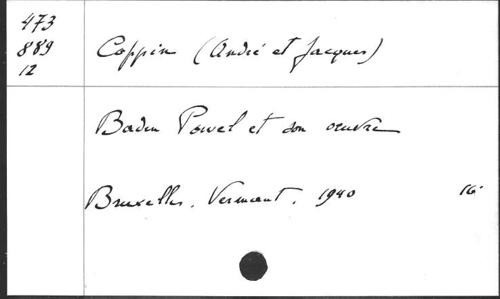 473
889
12
Coppin (André et Jacques)
Baden Powel et son oeuvre
Bruxelles. Vermaut. 1940 16°